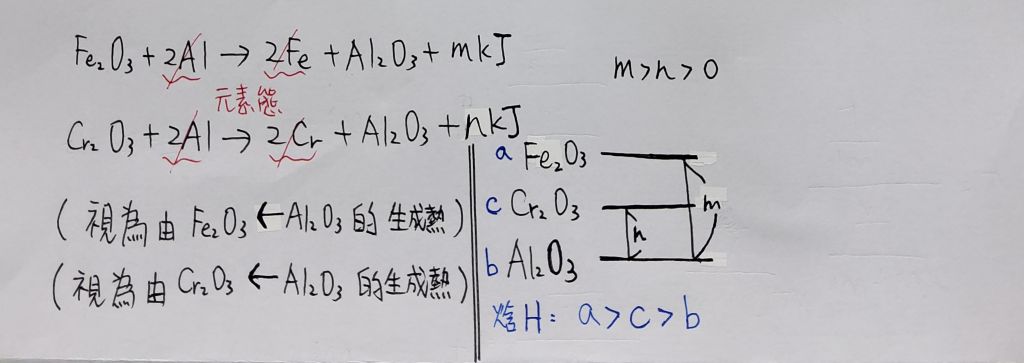 Fe₂O₃ + 2Al → 2Fe + Al₂O₃ + mkJ
m > n > 0
元素態
Cr₂O₃ + 2Al → 2Cr + Al₂O₃ + nkJ
(視為由 Fe₂O₃ ← Al₂O₃ 的生成熱)
(視為由 Cr₂O₃ ← Al₂O₃ 的生成熱)
a Fe₂O₃
m
c Cr₂O₃
n
b Al₂O₃
焓H: a > c > b